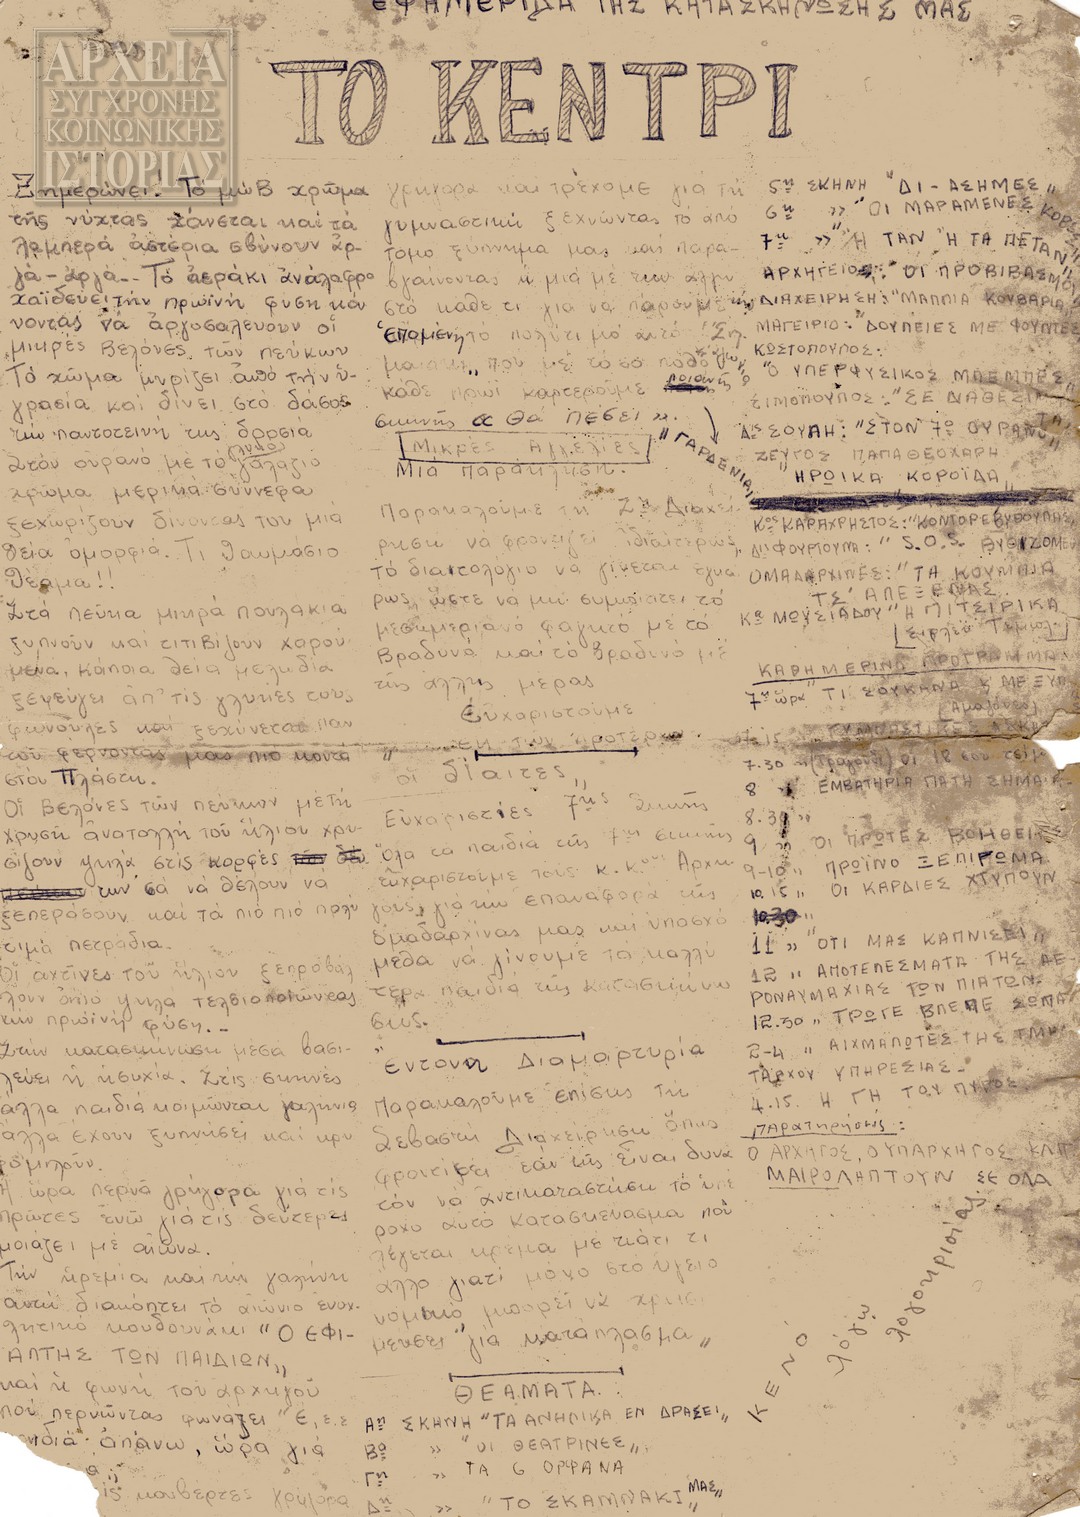 ΕΦΗΜΕΡΙΔΑ ΤΗΣ ΚΑΤΑΣΚΗΝΩΣΗΣ ΜΑΣ
ΑΡΧΕΙΑ
ΣΥΓΧΡΟΝΗΣ
ΚΟΙΝΩΝΙΚΗΣ
ΙΣΤΟΡΙΑΣ
ΤΟ ΚΕΝΤΡΙ
Ξημερώνει! Τό μώβ χρῶμα
τῆς νύχτας χάνεται καί τά
λαμπερά ἀστέρια σβύνουν ἀρ-
γά-ἀργά.. Τό ἀεράκι ἀνάλαφρο
χαϊδεύει τήν πρωϊνή φύση κά
νοντας νά ἀργοσαλεύουν οἱ
μικρές βελόνες τῶν πεύκων
Τό χῶμα μυρίζει ἀπό τήν ὑ-
γρασία καί δίνει στό δάσος
τήν παντοτεινή της δροσιά
Στόν οὐρανό μέ τό γαλάζιο
χρῶμα μερικά σύννεφα
ξεχωρίζουν δίνοντας του μιά
θεία ὀμορφιά. Τί θαυμάσιο
θέαμα!!
Στά πεῦκα μικρά πουλάκια
ξυπνοῦν καί τιτιβίζουν χαρού
μενα, κάποια θεία μελωδία
ξεφεύγει ἀπ' τίς γλυκιές τους
φωνοῦλες καί ξεχύνεται παν
τοῦ φέρνοντας μας πιό κοντά
στόν Πλάστη.
Οἱ βελόνες τῶν πεύκων μέ τή
χρυσή ἀνατολή τοῦ ἥλιου χρυ-
σίζουν ψηλά στίς κορφές
των σά νά θέλουν νά
ξεπεράσουν καί τά πιό πιό πολύ
τιμα πετράδια.
Οἱ ἀχτίνες τοῦ ἥλιου ξεπροβάλ
λουν ἀπό ψηλά τελειοποιώντας
τήν πρωϊνή φύση..-
Στήν κατασκήνωση μέσα βασι-
λεύει ἡ ἡσυχία. Στίς σκηνές
ἄλλα παιδιά κοιμῶνται γαλήνια
ἄλλα ἔχουν ξυπνήσει καί κρυ
φομιλοῦν.
Ἡ ὥρα περνᾶ γρήγορα γιά τίς
πρῶτες ἐνῶ γιά τίς δεύτερες
μοιάζει μέ αἰῶνα.
Τήν ἠρεμία καί τήν γαλήνη
αὐτή διακόπτει τό αἰώνιο ἐνοχ
λητικό κουδουνάκι "Ο ΕΦΙ-
ΑΛΤΗΣ ΤΩΝ ΠΑΙΔΙΩΝ„
καί ἡ φωνή τοῦ ἀρχηγοῦ
πού περνῶντας φωνάζει "Ε,ε,ε
παιδιά ἀπάνω, ὥρα γιά
κουβέρτες γρήγορα
γρήγορα καί τρέχομε γιά τή
γυμναστική ξεχνώντας τό ἀπό
τομο ξύπνημα μας καί παρα-
βγαίνοντας ἡ μιά μέ τήν ἄλλη
στό κάθε τι γιά νά πάρουμε
ἑπομένη τό πολύτιμο αὐτό "Ση
μαιάκι„ πού μέ τόσο πόθο
κάθε πρωί καρτεροῦμε ποιανῆς
σκηνῆς « Θά πέσει ».
Μικρές Ἀγγελίες
Μιά παράκληση.
"ΓΑΡΔΕΝΙΑ„
Παρακαλοῦμε τή Διαχεί
ρηση νά φροντίζει ἰδιαιτέρως,
τό διαιτολόγιο νά γίνεται ἐγκαί
ρως, ὥστε νά μή συμπίπτει τό
μεσημεριανό φαγητό μέ τό
βραδυνό καί τό βραδυνό μέ
τῆς ἄλλης μέρας
Εὐχαριστοῦμε
ἐκ τῶν προτέρων
"οἱ δίαιτες„
Εὐχαριστίες 7ης σκηνῆς
Ὅλα τά παιδιά τῆς 7ης σκηνῆς
εὐχαριστοῦμε τούς κ.κ. Ἀρχη
γούς, γιά τήν ἐπαναφορά τῆς
ὁμαδαρχίνας μας καί ὑποσχό
μεθα νά γίνουμε τά καλλί
τερα παιδιά τῆς κατασκηνώ
σεως.
"Ἔντονη Διαμαρτυρία
Παρακαλοῦμε ἐπίσης τή
Σεβαστή Διαχείρηση ὅπως
φροντίσει ἐάν τῆς εἶναι δυνα
τόν νά ἀντικαταστήση τό ὑπέ
ροχο αὐτό κατασκεύασμα πού
λέγεται κρέμα μέ κάτι τι
ἄλλο γιατί μόνο στό ὑγειο
νομικό μπορεῖ νά χρησι
μεύσει "γιά κατάπλασμα„
ΘΕΑΜΑΤΑ:
Αη ΣΚΗΝΗ "ΤΑ ΑΝΗΛΙΚΑ ΕΝ ΔΡΑΣΕΙ„
Βα » "ΟΙ ΘΕΑΤΡΙΝΕΣ„
Γη » "ΤΑ 6 ΟΡΦΑΝΑ
Δη » "ΤΟ ΣΚΑΜΝΑΚΙ ΜΑΣ„
5η ΣΚΗΝΗ "ΔΙ-ΑΣΗΜΕΣ„
6η » "ΟΙ ΜΑΡΑΜΕΝΕΣ ΚΟΡΕΣ
7η » "Ἤ ΤΑΝ Ἤ ΤΑ ΠΕΤΑΝ„
ΑΡΧΗΓΕΙΟΣ: "ΟΙ ΠΡΟΒΙΒΑΣΜΟΙ
ΔΙΑΧΕΙΡΗΣΗ: "ΜΑΛΛΙΑ ΚΟΥΒΑΡΙΑ„
ΜΑΓΕΙΡΙΟ: "ΔΟΥΛΕΙΕΣ ΜΕ ΦΟΥΝΤΕΣ
ΚΩΣΤΟΠΟΥΛΟΣ:
"Ο ΥΠΕΡΦΥΣΙΚΟΣ ΜΠΕΜΠΕΣ„
ΣΙΜΟΠΟΥΛΟΣ: "ΣΕ ΔΙΑΘΕΣΙΜΟΤΗΤΑ„
Δις ΣΟΥΛΗ: "ΣΤΟΝ 7ο ΟΥΡΑΝΟ„
ΖΕΥΓΟΣ ΠΑΠΑΘΕΟΧΑΡΗ
"ΗΡΩΙΚΑ ΚΟΡΟΪΔΑ„
Κος ΚΑΡΑΧΡΗΣΤΟΣ: "ΚΟΝΤΟΡΕΒΥΘΟΥΛΗΣ„
"S.O.S. ΒΥΘΙΖΟΜΕ
ΟΜΑΔΑΡΧΙΝΕΣ: "ΤΑ ΚΟΥΜΠΙΑ
ΤΣ' ΑΛΕΞΕΝΑΣ
Κα ΜΩΥΣΙΑΔΟΥ "Η ΠΙΤΣΙΡΙΚΑ
[Σίρλεϋ Τέμπλ]
ΚΑΘΗΜΕΡΙΝΟ ΠΡΟΓΡΑΜΜΑ
7η ὥρα "ΤΙ ΣΟΥΚΑΝΑ Κ ΜΕ ΞΥΠ
7.15 ΓΥΜΝΑΣΤΙΚΕΣ
7.30 " (τραγούδι) οι 18 σου
8 " ΕΜΒΑΤΗΡΙΑ ΠΑΤΗ ΣΗΜΑΙΑ-
8.30 "
9 " ΟΙ ΠΡΩΤΕΣ ΒΟΗΘΕΙΕΣ
9-10 " ΠΡΩΪΝΟ ΞΕΠΙΡΩΜΑ
10.15 " ΟΙ ΚΑΡΔΙΕΣ ΧΤΥΠΟΥΝ
10.30 "
11 " "ΟΤΙ ΜΑΣ ΚΑΠΝΙΣΕΙ„
12 " ΑΠΟΤΕΛΕΣΜΑΤΑ ΤΗΣ ΑΕ-
ΡΟΝΑΥΜΑΧΙΑΣ ΤΩΝ ΠΙΑΤΩΝ
12.30 " ΤΡΩΓΕ ΒΛΕΠΕ ΣΩΠΑ
2-4 " ΑΙΧΜΑΛΩΤΕΣ ΤΗΣ ΤΜΗ-
ΤΑΡΧΟΥ ΥΠΗΡΕΣΙΑΣ-
4.15. Η ΓΗ ΤΟΥ ΠΥΡΟΣ
Παρατηρήσεις:
Ο ΑΡΧΗΓΟΣ, Ο ΥΠΑΡΧΗΓΟΣ ΚΛΠ
ΜΑΙΡΟΛΗΠΤΟΥΝ ΣΕ ΟΛΑ
ΚΕΝΟ
λόγῳ
λογοκρισίας